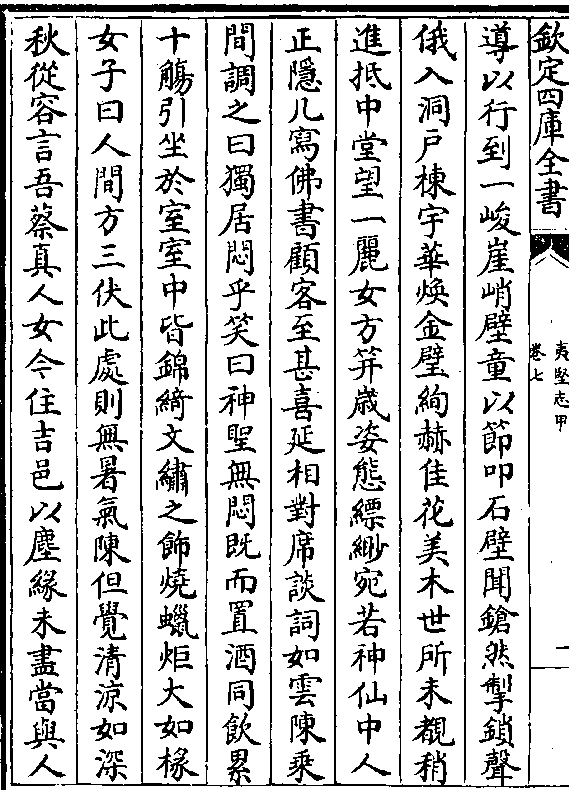 欽定四庫全書
夷堅志甲
卷七
一
導以行到一峻崖峭壁童以節叩石壁聞鎗然掣鎖聲
俄入洞戸棟宇華煥金璧絢赫佳花美木世所未覩稍
進抵中堂望一麗女方笄歳姿態縹緲宛若神仙中人
正隱几寫佛書顧客至甚喜延相對席談詞如雲陳乗
間調之曰獨居悶乎笑曰神聖無悶既而置酒同飲累
十觴引坐於室室中皆錦綺文繡之飾燒蠟炬大如椽
女子曰人間方三伏此處則無暑氣陳但覺清涼如深
秋從容言吾蔡真人女今住吉邑以塵緣未盡當與人